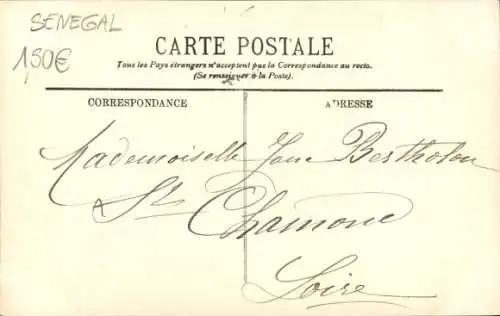 SENEGAL
1,50€
CARTE POSTALE
Tous les Pays étrangers n'acceptent pas la Correspondance au recto.
(Se renseigner à la Poste).
CORRESPONDANCE
ADRESSE
Mademoiselle Jane Bertholon
St Chamond
Loire